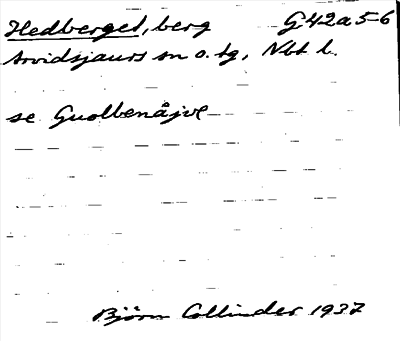 Hedberget, berg G 42 a 5-6
Arvidsjaurs sn o. tg, Nbt l.
se Guolbenåjve
Björn Collinder 1937